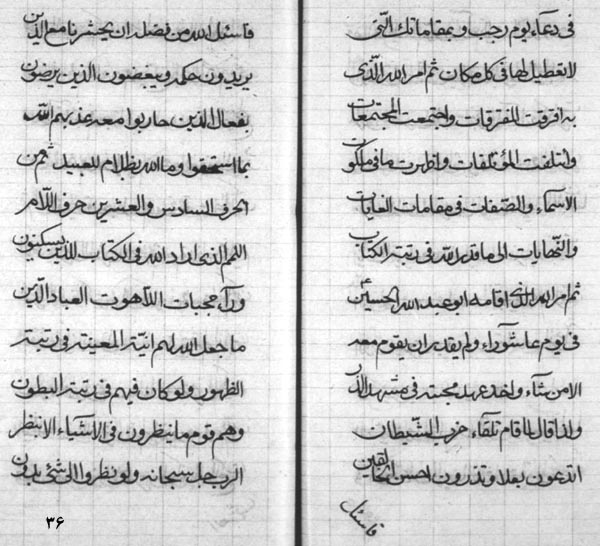 فی دعاء یوم رجب و بمقاماتك الّتی
لا تعطیل لها فی كل مكان ثم امر الله الّذی
به افرقت المفترقات و اجتمعت المجتمعات
و ائتلفت المؤتلفات و اظهرت ما فی ملكوت
الاسماء و الصّفات فی مقامات الغایات
و النّهایات الی ما قدر الله فی رتبة الكتاب
ثم امر الله الذی اقامه ابو عبد الله الحسین ع
فی یوم عاشوراء و لم یقدر ان یقوم معه
الا من شاء و اخذ عهد محبته فی مشهد الذّر
و لذا قال لما قام تلقاء حزب الشّیطان
اتدعون بعلا و تذرون احسن الخالقین
فاسئل
فاسئل الله من فضله ان یحشرنا مع الّذین
یریدون حكمه و یبغضون الذین یرضون
بفعال الذین حاربوا معه عذبهم اللّه
بما استحقوا و ما الله بظلام للعبید ثم من
الحرف السادس و العشرین حرف اللّام
اللّهم الذی اراد الله فی الكتاب للذین یسكنون
وراء حجبات اللّاهوت العباد الّذین
ما جعل الله لهم انیّة المعینة فی رتبة
الظهور و لو كان فیهم فی رتبة البطون
و هم قوم ما ینظرون فی الاشیاء الا بنظر
الرب جل سبحانه و لو نظروا الی شئ بدون
۳۶